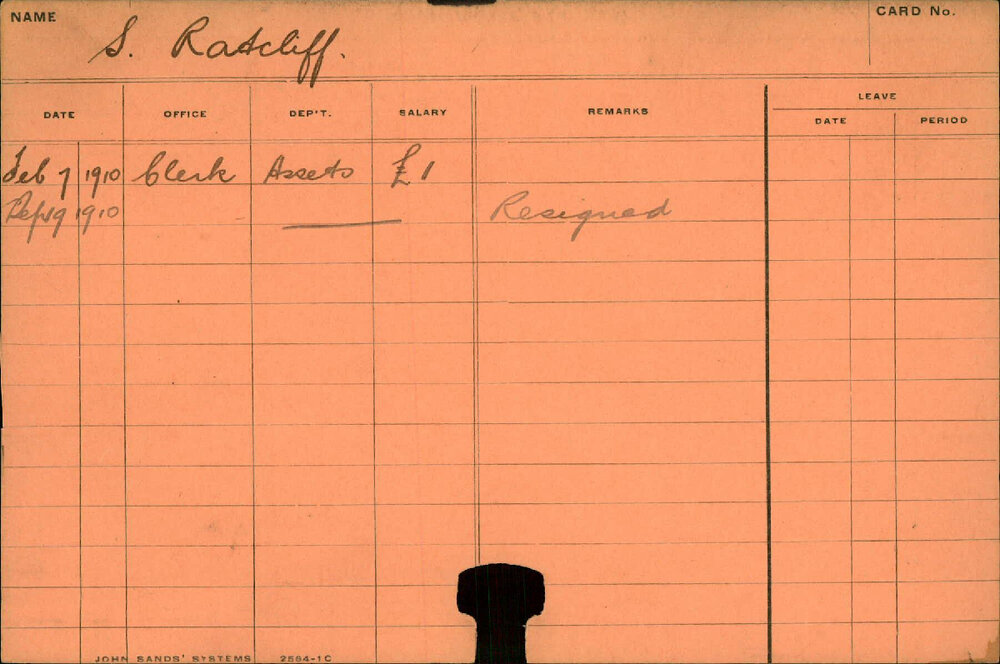 NAME
CARD No.
S. Ratcliff.
LEAVE
DATE OFFICE DEP'T. SALARY REMARKS DATE PERIOD
Feb 7 1910 Clerk Assets £1
Sep 19 1910 Resigned
JOHN SANDS' SYSTEMS 2584-1C